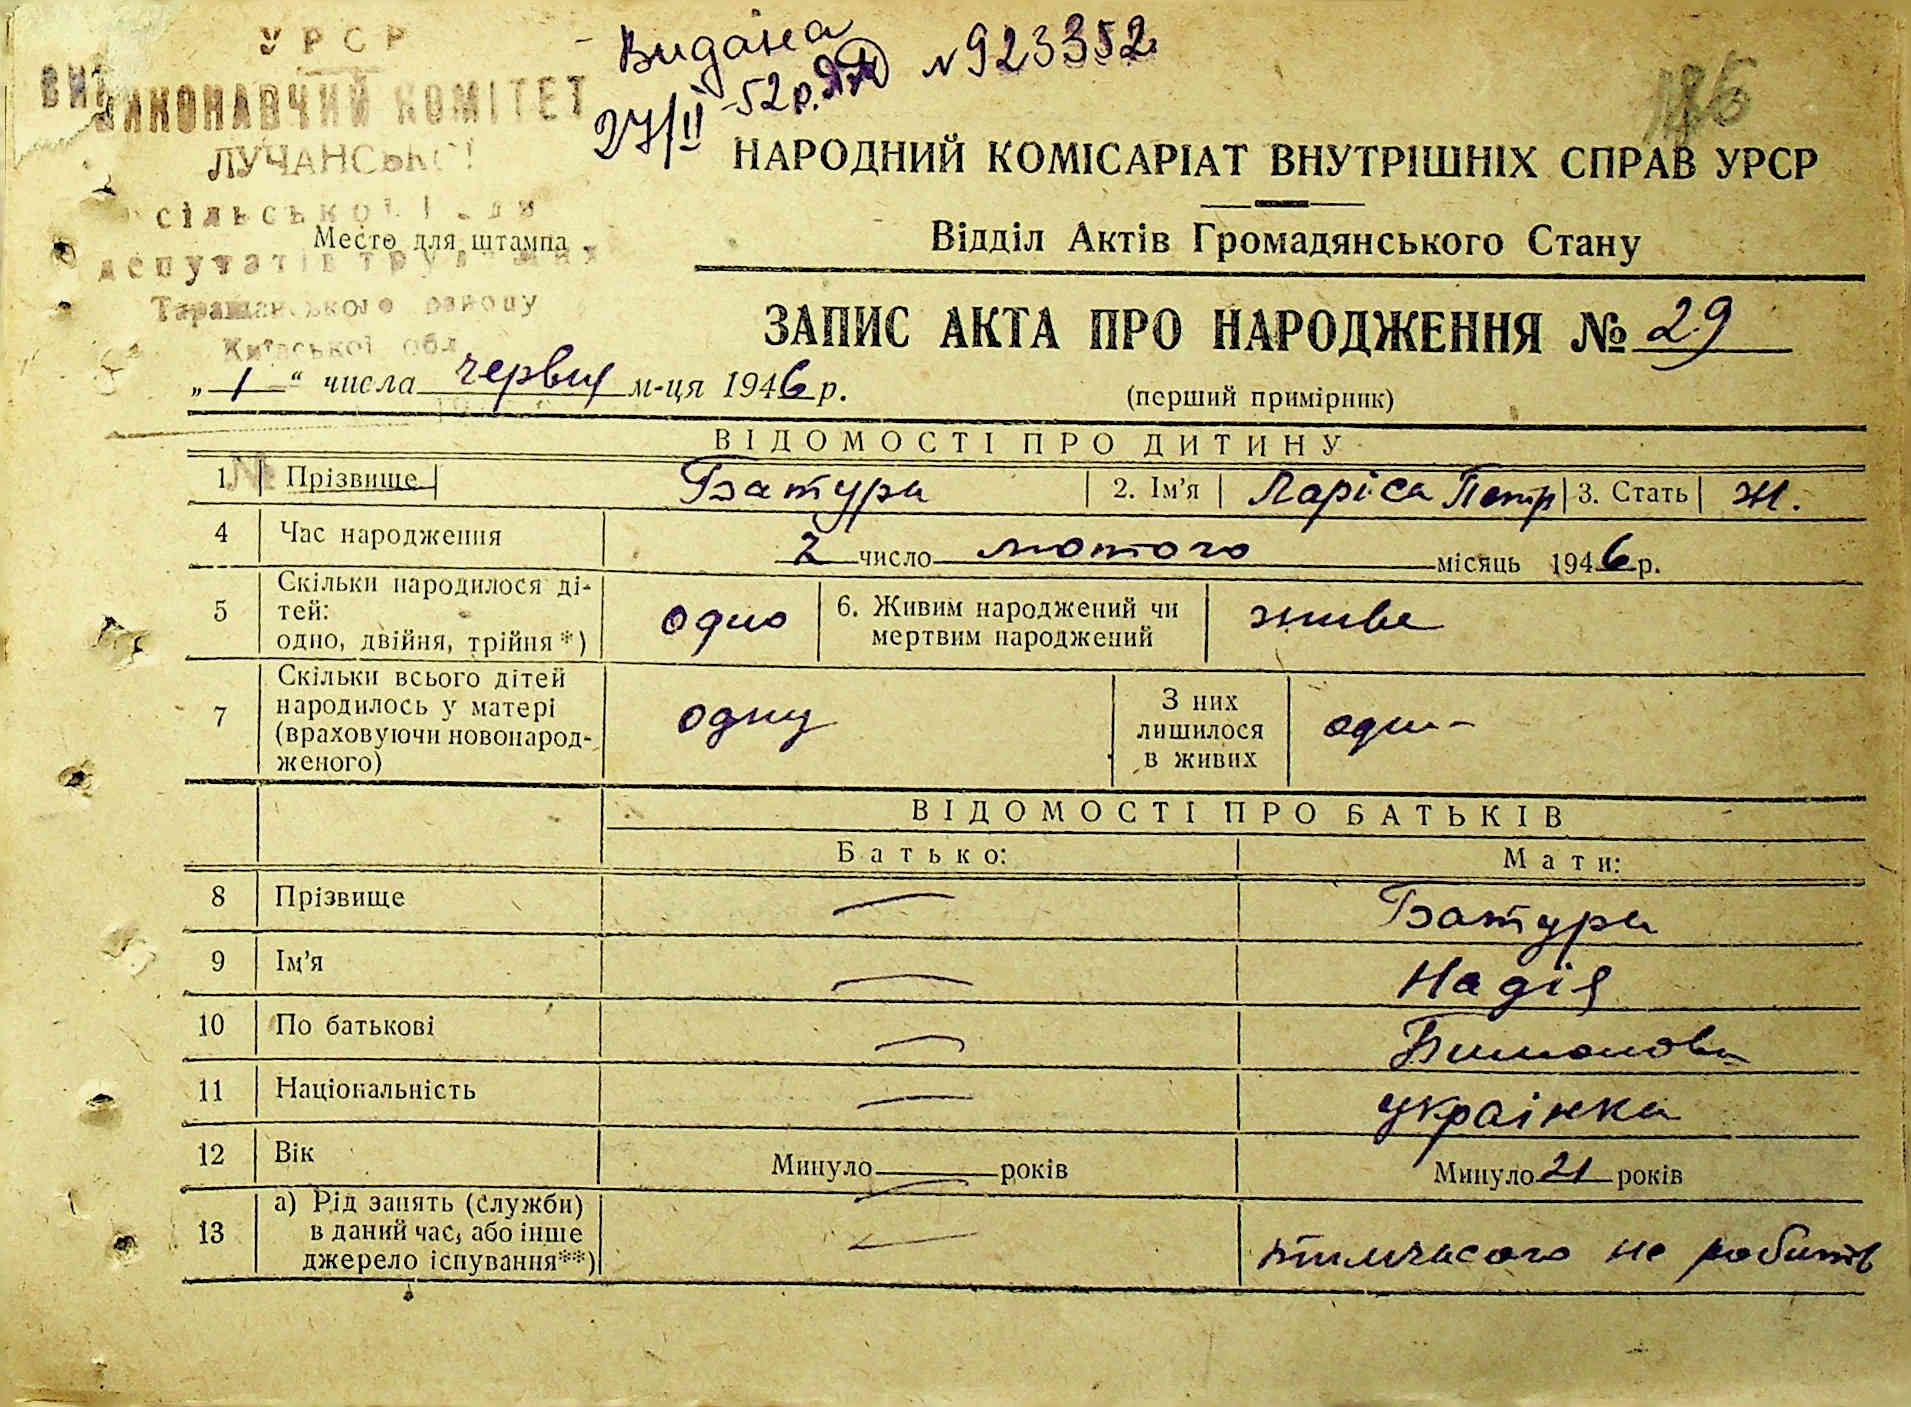 УРСР
ВИКОНАВЧИЙ КОМІТЕТ
ЛУЧАНСЬКОЇ
сільської Ради
депутатів трудящих
Таращанського району
Київської обл.
Место для штампа
Видана № 923352
27/II-52р.
НАРОДНИЙ КОМІСАРІАТ ВНУТРІШНІХ СПРАВ УРСР
Відділ Актів Громадянського Стану
ЗАПИС АКТА ПРО НАРОДЖЕННЯ № 29
„1“ числа червня м-ця 1946 р.
(перший примірник)
ВІДОМОСТІ ПРО ДИТИНУ
1 Прізвище Батура 2. Ім'я Ларіса Петр 3. Стать ж.
4 Час народження 2 число лютого місяць 1946 р.
5 Скільки народилося ді-
тей:
одно, двійня, трійня*) одно 6. Живим народжений чи
мертвим народжений живе
7 Скільки всього дітей
народилось у матері
(враховуючи новонарод-
женого) одну З них
лишилося
в живих одн-
ВІДОМОСТІ ПРО БАТЬКІВ
Батько: Мати:
8 Прізвище — Батура
9 Ім'я — Надія
10 По батькові —
11 Національність — українка
12 Вік Минуло — років Минуло 21 років
13 а) Рід занять (служби)
в даний час, або інше
джерело існування**) — тимчасого не робить